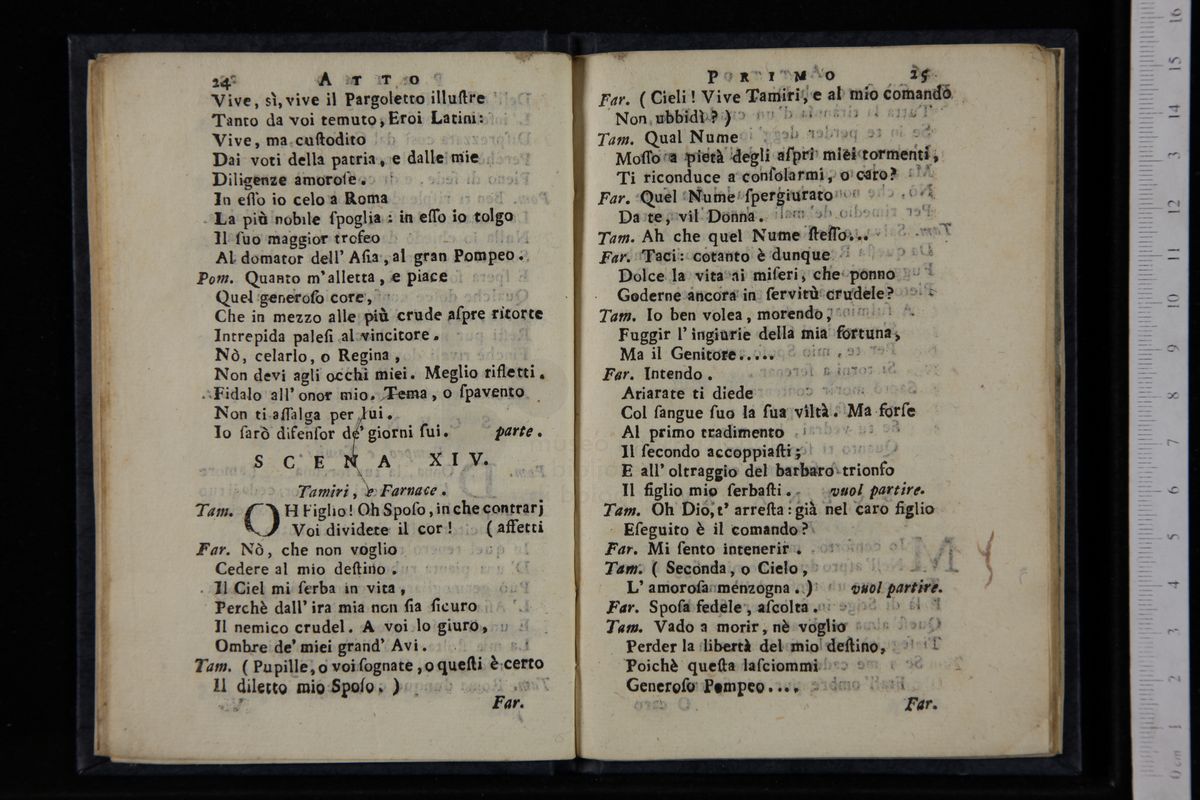 24 ATTO
Vive, sì, vive il Pargoletto illuſtre
Tanto da voi temuto, Eroi Latini:
Vive, ma cuſtodito
Dai voti della patria, e dalle mie
Diligenze amoroſe.
In eſſo io celo a Roma
La più nobile ſpoglia: in eſſo io tolgo
Il ſuo maggior trofeo
Al domator dell' Aſia, al gran Pompeo.
Pom. Quanto m'alletta, e piace
Quel generoſo core,
Che in mezzo alle più crude aſpre ritorte
Intrepida paleſi al vincitore.
Nò, celarlo, o Regina,
Non devi agli occhi miei. Meglio rifletti.
Fidalo all' onor mio. Tema, o ſpavento
Non ti aſſalga per lui.
Io ſarò difenſor de' giorni ſui. parte.
SCENA XIV.
Tamiri, e Farnace.
Tam. OH Figlio! Oh Spoſo, in che contrarj
Voi dividete il cor! (affetti
Far. Nò, che non voglio
Cedere al mio deſtino.
Il Ciel mi ſerba in vita,
Perchè dall' ira mia non ſia ſicuro
Il nemico crudel. A voi lo giuro,
Ombre de' miei grand' Avi.
Tam. (Pupille, o voi ſognate, o queſti è certo
Il diletto mio Spoſo.)
Far.
PRIMO 25
Far. (Cieli! Vive Tamiri, e al mio comando
Non ubbidì?)
Tam. Qual Nume
Moſſo a pietà degli aſpri miei tormenti,
Ti riconduce a conſolarmi, o caro?
Far. Quel Nume ſpergiurato
Da te, vil Donna.
Tam. Ah che quel Nume ſteſſo...
Far. Taci: cotanto è dunque
Dolce la vita ai miſeri, che ponno
Goderne ancora in ſervitù crudele?
Tam. Io ben volea, morendo,
Fuggir l' ingiurie della mia fortuna,
Ma il Genitore.....
Far. Intendo.
Ariarate ti diede
Col ſangue ſuo la ſua viltà. Ma forſe
Al primo tradimento
Il ſecondo accoppiaſti;
E all' oltraggio del barbaro trionfo
Il figlio mio ſerbaſti. vuol partire.
Tam. Oh Dio, t' arreſta: già nel caro figlio
Eſeguito è il comando?
Far. Mi ſento intenerir.
Tam. (Seconda, o Cielo,
L' amoroſa menzogna.) vuol partire.
Far. Spoſa fedele, aſcolta.
Tam. Vado a morir, nè voglio
Perder la libertà del mio deſtino,
Poichè queſta laſciommi
Generoſo Pompeo....
Far.
0 cm 1 2 3 4 5 6 7 8 9 10 11 12 13 14 15 16